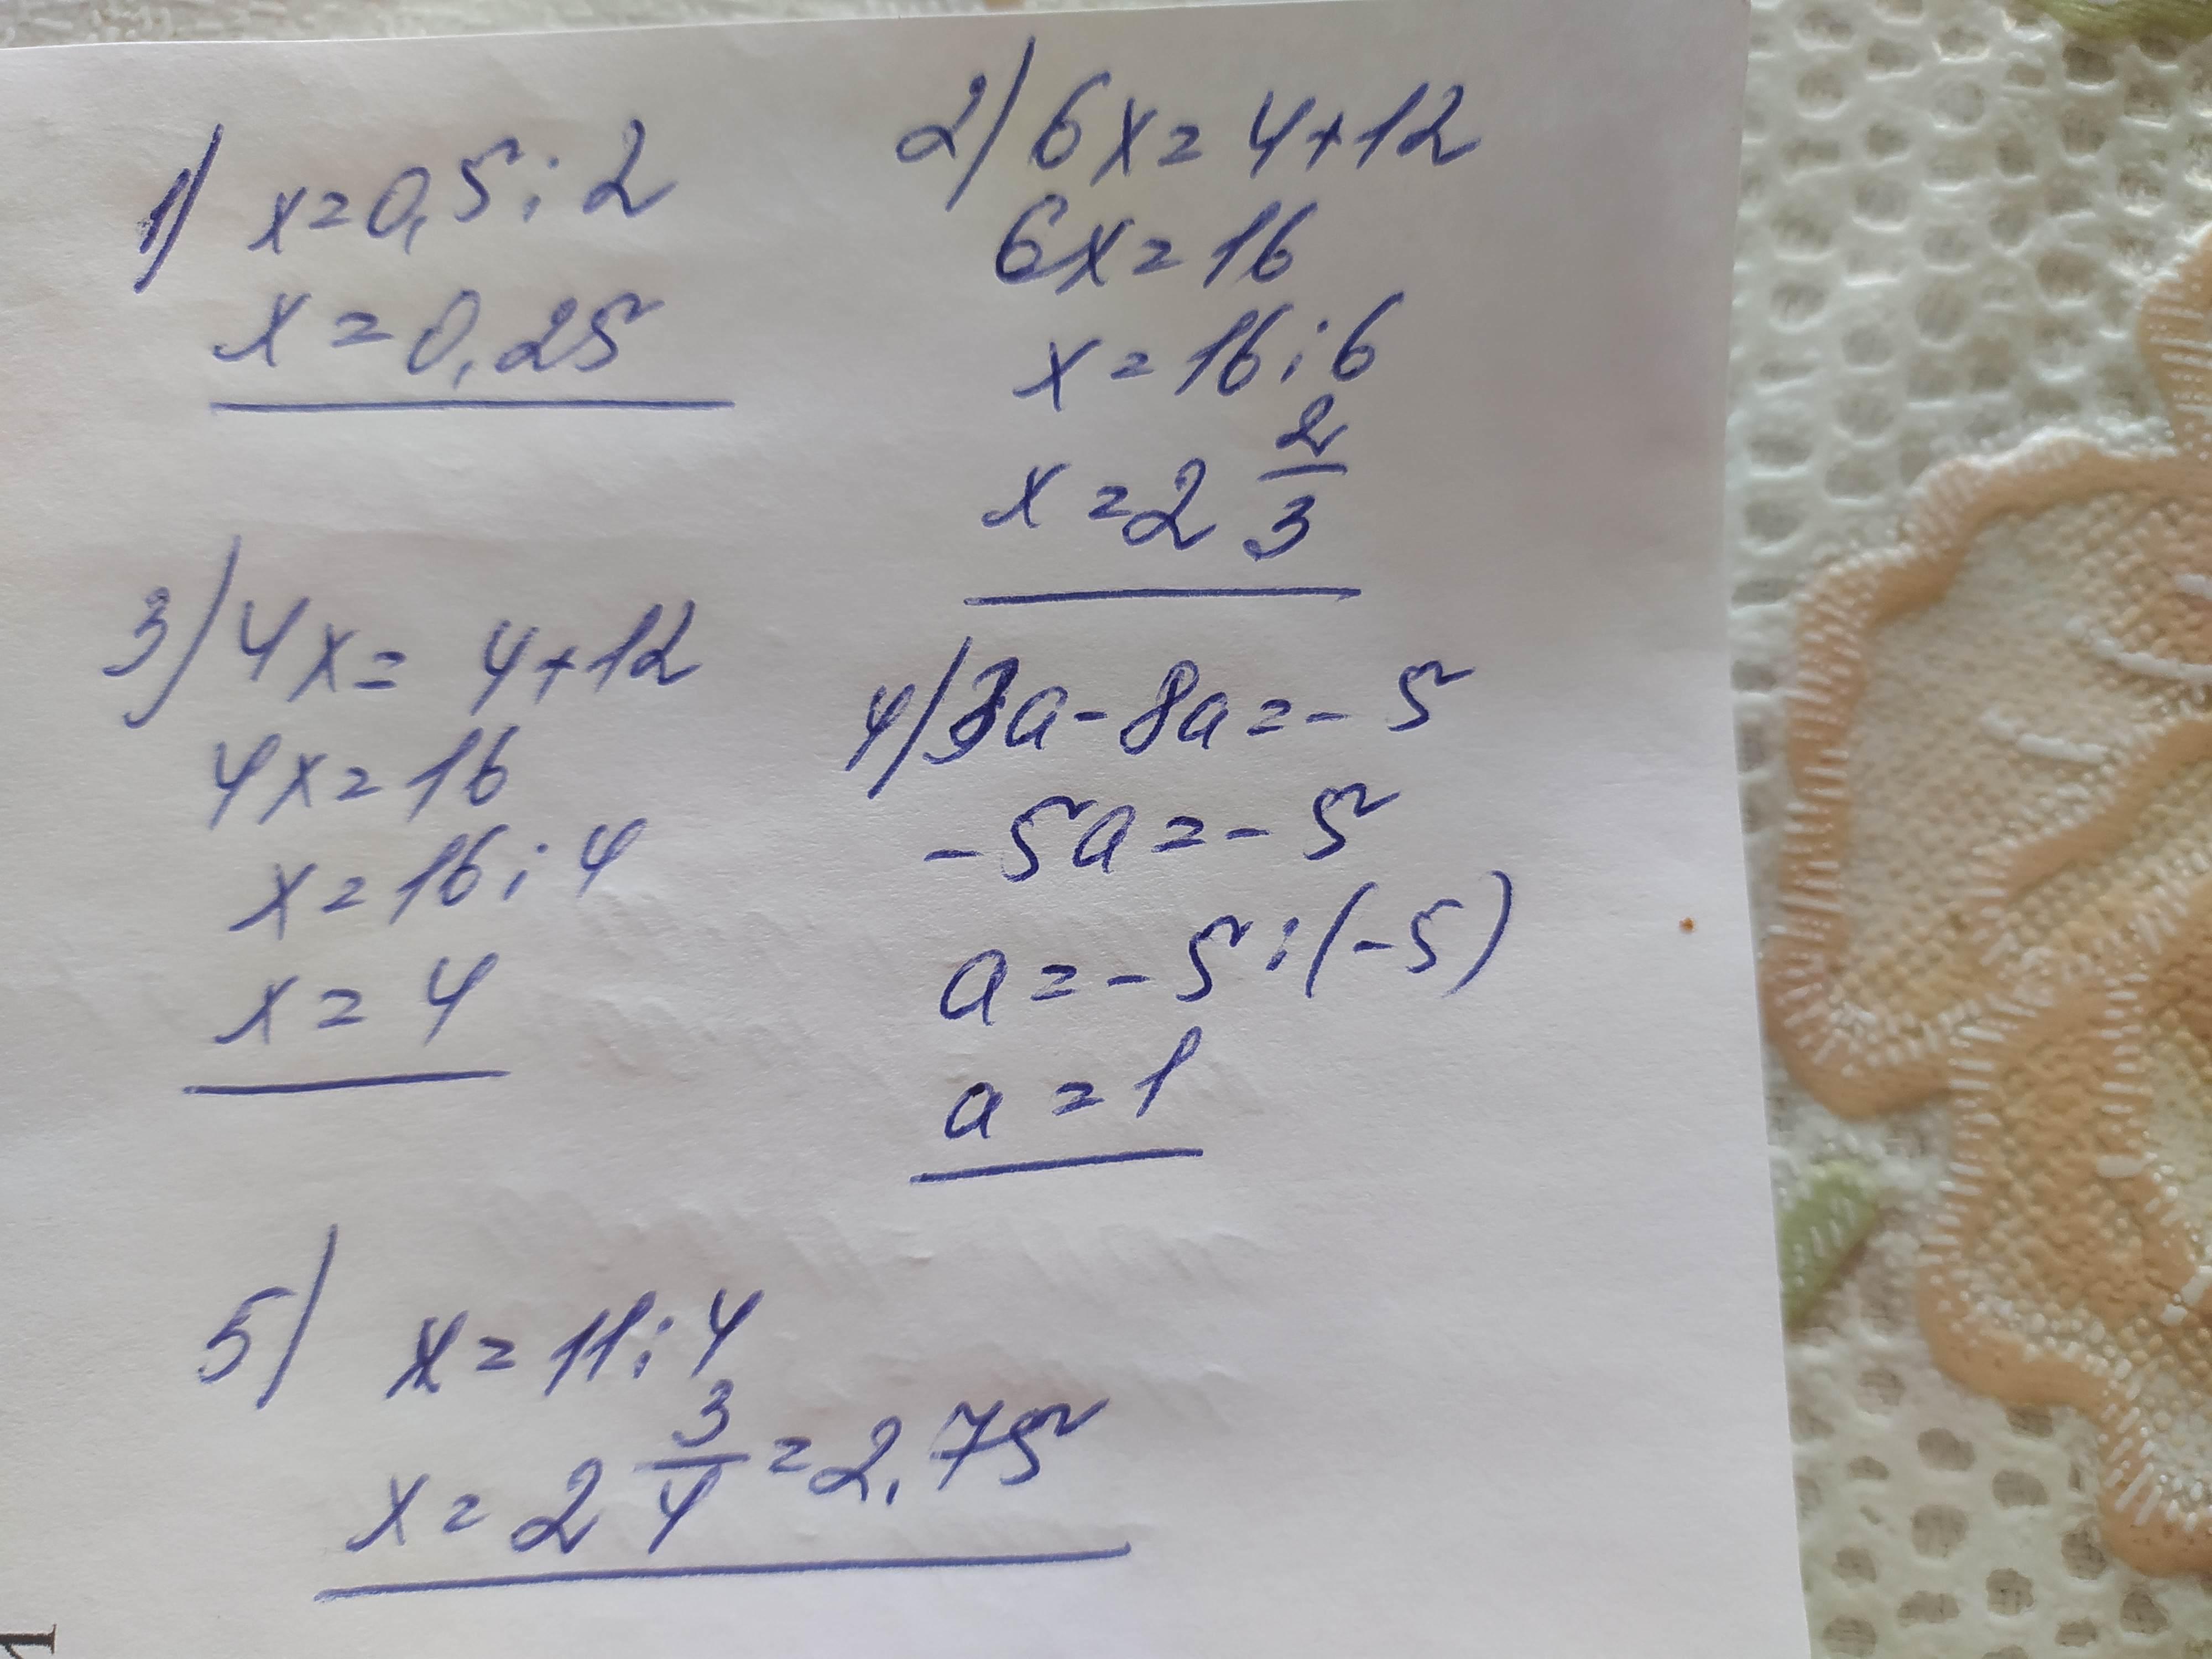 1) x=0,5:2
x=0,25
2) 6x=4+12
6x=16
x=16:6
x=2 2/3
3) 4x=4+12
4x=16
x=16:4
x=4
4) 3a-8a=-5
-5a=-5
a=-5:(-5)
a=1
5) x=11:4
x=2 3/4=2,75